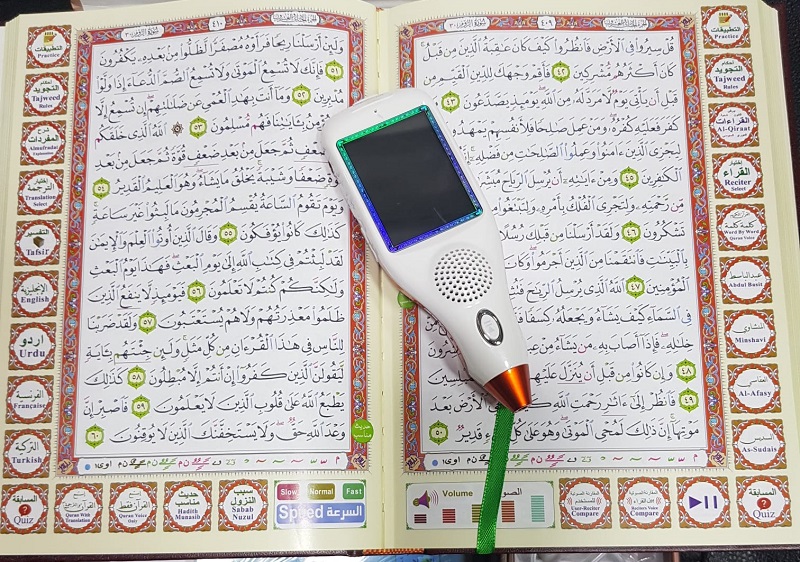 ٤٠٩ سورة الروم ٣٠
قُلْ سِيرُوا فِي الْأَرْضِ فَانظُرُوا كَيْفَ كَانَ عَاقِبَةُ الَّذِينَ مِن قَبْلُ
كَانَ أَكْثَرُهُم مُّشْرِكِينَ ٤٢ فَأَقِمْ وَجْهَكَ لِلدِّينِ الْقَيِّمِ مِن
قَبْلِ أَن يَأْتِيَ يَوْمٌ لَّا مَرَدَّ لَهُ مِنَ اللَّهِ يَوْمَئِذٍ يَصَّدَّعُونَ ٤٣
كَفَرَ فَعَلَيْهِ كُفْرُهُ وَمَنْ عَمِلَ صَالِحًا فَلِأَنفُسِهِمْ يَمْهَدُونَ
لِيَجْزِيَ الَّذِينَ ءَامَنُوا وَعَمِلُوا الصَّالِحَاتِ مِن فَضْلِهِ
الْكَافِرِينَ ٤٥ وَمِنْ ءَايَاتِهِ أَن يُرْسِلَ الرِّيَاحَ
مِّن رَّحْمَتِهِ وَلِتَجْرِيَ الْفُلْكُ بِأَمْرِهِ وَلِتَبْتَغُوا
تَشْكُرُونَ ٤٦ وَلَقَدْ أَرْسَلْنَا مِن قَبْلِكَ رُسُلًا
بِالْبَيِّنَاتِ فَانتَقَمْنَا مِنَ الَّذِينَ أَجْرَمُوا وَكَانَ
الْمُؤْمِنِينَ ٤٧ اللَّهُ الَّذِي يُرْسِلُ الرِّيَاحَ فَتُثِيرُ
فِي السَّمَاءِ كَيْفَ يَشَاءُ وَيَجْعَلُهُ كِسَفًا
خِلَالِهِ فَإِذَا أَصَابَ بِهِ مَن يَشَاءُ مِنْ
٤٨ وَإِن كَانُوا مِن قَبْلِ أَن يُنَزَّلَ عَلَيْهِم
٤٩ فَانظُرْ إِلَى ءَاثَارِ رَحْمَتِ اللَّهِ الْأَرْضَ بَعْدَ
مَوْتِهَا إِنَّ ذَلِكَ لَمُحْيِ الْمَوْتَى وَهُوَ عَلَى كُلِّ شَيْءٍ قَدِيرٌ ٥٠
التطبيقات
Practice
أحكام
التجويد
Tajweed
Rules
القراءات
Al-Qiraat
إختيار
القراء
Reciter
Select
كلمة كلمة
Word By Word
Quran Voice
عبد الباسط
Abdul Basit
المنشاوي
Minshavi
العفاسي
Al-Afasy
السديس
As-Sudais
Volume الصوت
User-Reciter
Compare
Reciters Voice
Compare
المسابقة
Quiz
٤١٠ سورة الروم ٣٠
وَلَئِنْ أَرْسَلْنَا رِيحًا فَرَأَوْهُ مُصْفَرًّا لَّظَلُّوا مِن بَعْدِهِ يَكْفُرُونَ
٥١ فَإِنَّكَ لَا تُسْمِعُ الْمَوْتَى وَلَا تُسْمِعُ الصُّمَّ الدُّعَاءَ إِذَا وَلَّوْا
مُدْبِرِينَ ٥٢ وَمَا أَنتَ بِهَادِ الْعُمْيِ عَن ضَلَالَتِهِمْ إِن تُسْمِعُ إِلَّا
يُؤْمِنُ بِآيَاتِنَا فَهُم مُّسْلِمُونَ ٥٣ اللَّهُ الَّذِي خَلَقَكُم
ضَعْفٍ ثُمَّ جَعَلَ مِن بَعْدِ ضَعْفٍ قُوَّةً ثُمَّ جَعَلَ مِن بَعْدِ
قُوَّةٍ ضَعْفًا وَشَيْبَةً يَخْلُقُ مَا يَشَاءُ وَهُوَ الْعَلِيمُ الْقَدِيرُ ٥٤
وَيَوْمَ تَقُومُ السَّاعَةُ يُقْسِمُ الْمُجْرِمُونَ مَا لَبِثُوا غَيْرَ سَاعَةٍ
كَذَلِكَ كَانُوا يُؤْفَكُونَ ٥٥ وَقَالَ الَّذِينَ أُوتُوا الْعِلْمَ وَالْإِيمَانَ
لَقَدْ لَبِثْتُمْ فِي كِتَابِ اللَّهِ إِلَى يَوْمِ الْبَعْثِ فَهَذَا يَوْمُ الْبَعْثِ
وَلَكِنَّكُمْ كُنتُمْ لَا تَعْلَمُونَ ٥٦ فَيَوْمَئِذٍ لَّا يَنفَعُ الَّذِينَ
ظَلَمُوا مَعْذِرَتُهُمْ وَلَا هُمْ يُسْتَعْتَبُونَ ٥٧ وَلَقَدْ ضَرَبْنَا
لِلنَّاسِ فِي هَذَا الْقُرْءَانِ مِن كُلِّ مَثَلٍ وَلَئِن جِئْتَهُم بِآيَةٍ
لَّيَقُولَنَّ الَّذِينَ كَفَرُوا إِنْ أَنتُمْ إِلَّا مُبْطِلُونَ ٥٨ كَذَلِكَ
يَطْبَعُ اللَّهُ عَلَى قُلُوبِ الَّذِينَ لَا يَعْلَمُونَ ٥٩ فَاصْبِرْ إِنَّ
وَعْدَ اللَّهِ حَقٌّ وَلَا يَسْتَخِفَّنَّكَ الَّذِينَ لَا يُوقِنُونَ ٦٠
حديث مناسب
التطبيقات
Practice
أحكام
التجويد
Tajweed
Rules
شرح
المفردات
Almufradat
Explanation
إختيار
الترجمة
Translation
Select
التفسير
Tafsir
الإنجليزية
English
اردو
Urdu
الفرنسية
Française
التركية
Turkish
المسابقة
Quiz
Quran With
Translation
القرآن فقط
Quran Voice
Only
حديث
مناسب
Hadith
Munasib
سبب
النزول
Sabab
Nuzul
Slow Normal Fast
Speed السرعة